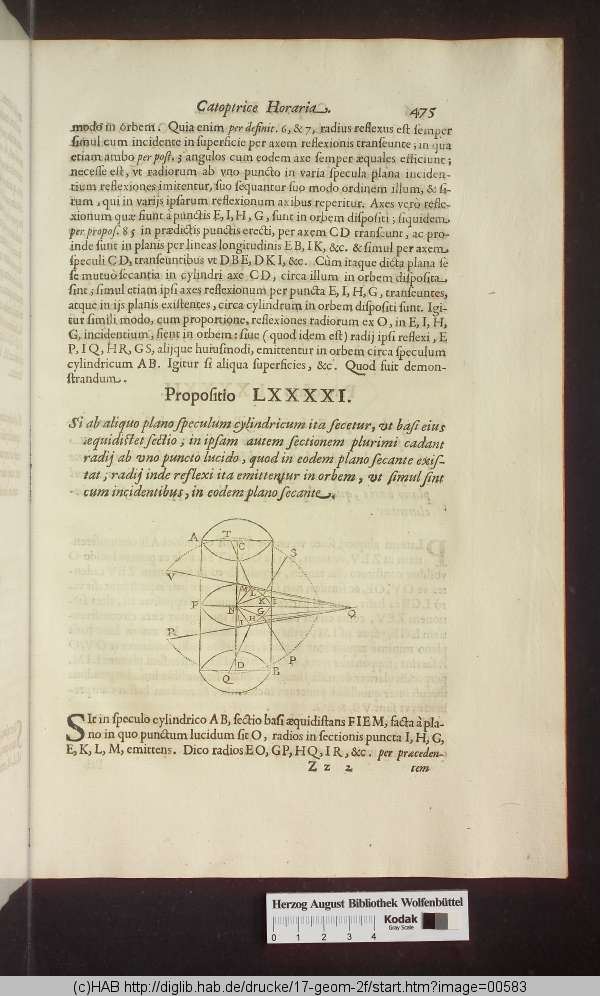 Catoptrice Horaria. 475
modo in orbem. Quia enim per definit. 6, & 7, radius reflexus est semper
simul cum incidente in superficie per axem reflexionis transeunte; in qua
etiam ambo per post. 3 angulos cum eodem axe semper æquales efficiunt;
necesse est, vt radiorum ab vno puncto in varia specula plana inciden-
tium reflexiones imitentur, suo sequantur suo modo ordinem illum, & si-
tum, qui in varijs ipsarum reflexionum axibus reperitur. Axes vero refle-
xionum quæ fiunt à punctis E, I, H, G, sunt in orbem dispositi; siquidem
per propos. 85 in prædictis punctis erecti, per axem CD transeunt, ac pro-
inde sunt in planis per lineas longitudinis EB, IK, &c. & simul per axem
speculi CD, transeuntibus vt DBE, DKI, &c. Cùm itaque dicta plana se
se mutuò secantia in cylindri axe CD, circa illum in orbem disposita
sint; simul etiam ipsi axes reflexionum per puncta E, I, H, G, transeuntes,
atque in ijs planis existentes, circa cylindrum in orbem dispositi sunt. Igi-
tur simili modo, cum proportione, reflexiones radiorum ex O, in E, I, H,
G, incidentium, fient in orbem: siue (quod idem est) radij ipsi reflexi, E
P, I Q, H R, G S, alijque huiusmodi, emittentur in orbem circa speculum
cylindricum AB. Igitur si aliqua superficies, &c. Quod fuit demon-
strandum.
Propositio LXXXXI.
Si ab aliquo plano speculum cylindricum ita secetur, vt basi eius
æquidistet sectio; in ipsam autem sectionem plurimi cadant
radij ab vno puncto lucido, quod in eodem plano secante exis-
tat; radij inde reflexi ita emittentur in orbem, vt simul sint
cum incidentibus, in eodem plano secante.
A T C S
V M L K E
F N G O
I H
R D P
Q B
SIt in speculo cylindrico AB, sectio basi æquidistans FIEM, facta à pla-
no in quo punctum lucidum sit O, radios in sectionis puncta I, H, G,
E, K, L, M, emittens. Dico radios EO, GP, HQ, IR, &c. per præceden-
Z z 2 tem
Herzog August Bibliothek Wolfenbüttel
Kodak
Gray Scale
0 1 2 3 4
(c)HAB http://diglib.hab.de/drucke/17-geom-2f/start.htm?image=00583